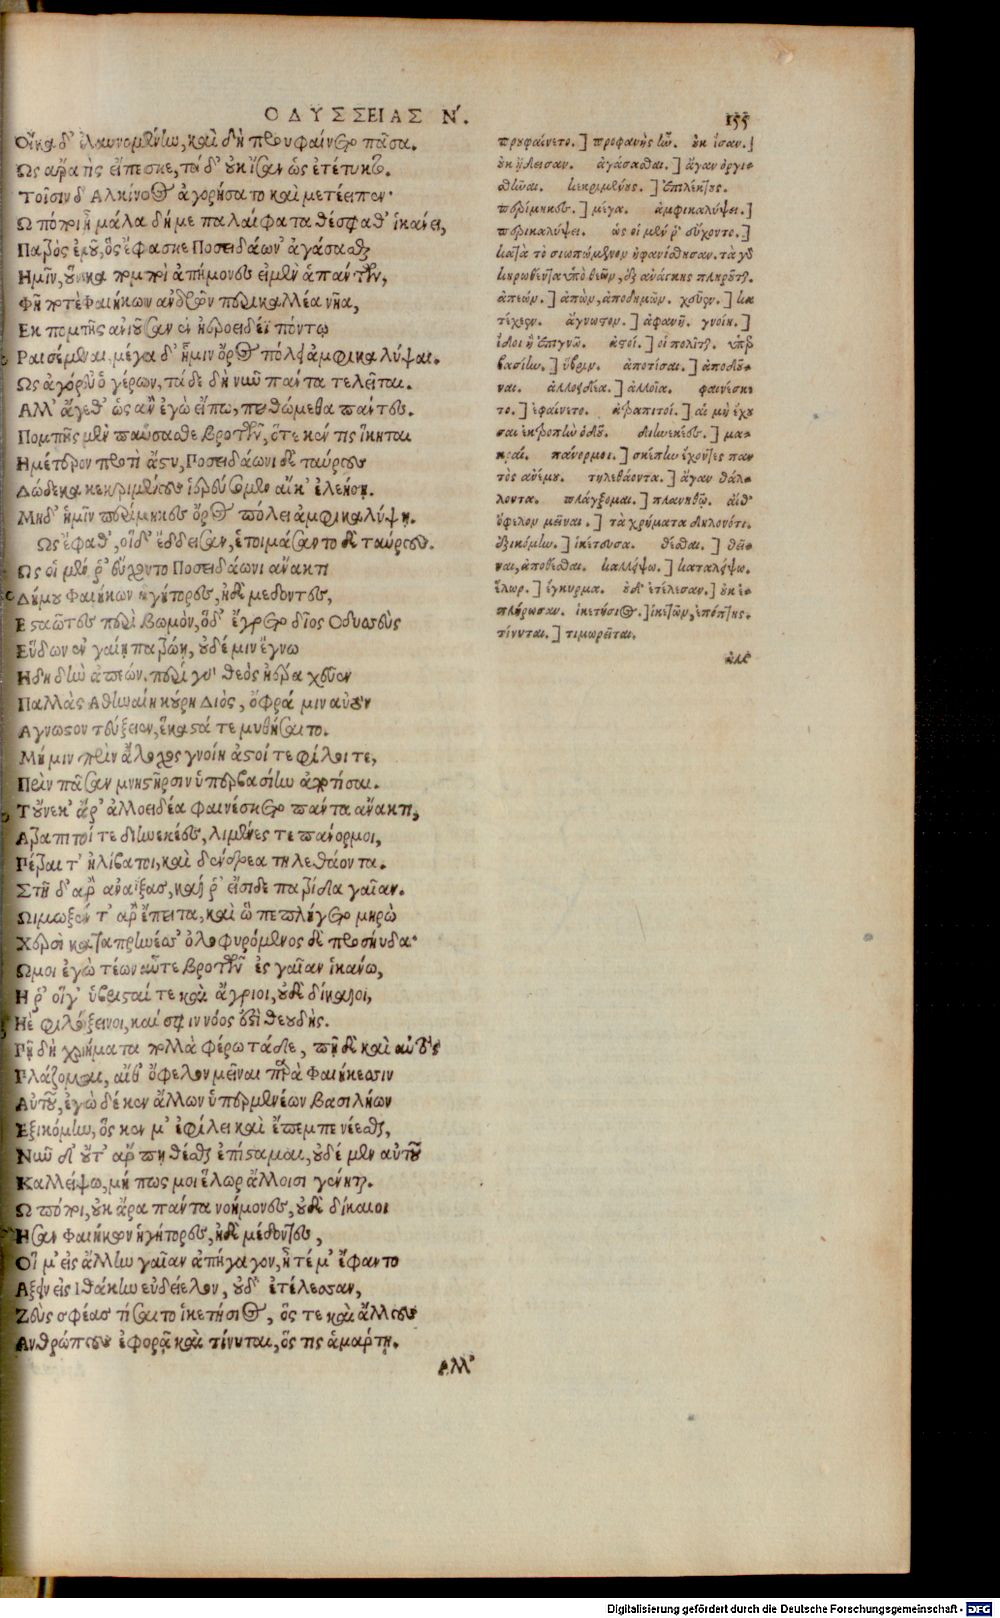 ΟΔΥΣΣΕΙΑΣ Ν.
155
Οἴκαδ' ἐλαυνομένην, καὶ δὴ προυφαίνετο πᾶσα.
Ὣς ἄρα τὶς εἴπεσκε, τάδ' οὐκ ἴσαν ὡς ἐτέτυκτο.
Τοῖσιν δ' Ἀλκίνοος ἀγορήσατο καὶ μετέειπεν·
Ὢ πόποι ἦ μάλα δή με παλαίφατα θέσφαθ' ἱκάνει,
Πατρὸς ἐμοῦ, ὃς ἔφασκε Ποσειδάων' ἀγάσασθαι
Ἡμῖν, οὕνεκα πομποὶ ἀπήμονες εἰμὲν ἁπάντων,
Φῆ ποτὲ Φαιήκων ἀνδρῶν περικαλλέα νῆα,
Ἐκ πομπῆς ἀνιοῦσαν ἐν ἠεροειδέϊ πόντῳ
Ῥαισέμεναι, μέγα δ' ἧμιν ὄρος πόλει ἀμφικαλύψαι.
Ὣς ἀγόρευ' ὁ γέρων, τάδε δὴ νῦν πάντα τελεῖται.
Ἀλλ' ἄγεθ' ὡς ἂν ἐγὼ εἴπω, πειθώμεθα πάντες.
Πομπῆς μὲν παύσασθε βροτῶν, ὅτε κέν τις ἵκηται
Ἡμέτερον προτὶ ἄστυ, Ποσειδάωνι δὲ ταύρους
Δώδεκα κεκριμένους ἱερεύσομεν αἴκ' ἐλεήσῃ.
Μηδ' ἡμῖν περίμηκες ὄρος πόλει ἀμφικαλύψῃ.
Ὣς ἔφαθ', οἵδ' ἔδδεισαν, ἑτοιμάσαντο δὲ ταύρους.
Ὣς οἱ μέν ῥ' εὔχοντο Ποσειδάωνι ἄνακτι
Δήμου Φαιήκων ἡγήτορες, ἠδὲ μέδοντες,
Ἑσταῶτες περὶ βωμὸν, ὅδ' ἔγρετο δῖος Ὀδυσσεὺς
Εὕδων ἐν γαίῃ πατρώῃ, οὐδέ μιν ἔγνω
Ἤδη δὴν ἀπεών. περὶ γὰρ θεὸς ἠέρα χεῦεν
Παλλὰς Ἀθηναίη κούρη Διὸς, ὄφρά μιν αὐτὸν
Ἄγνωστον τεύξειεν, ἕκαστά τε μυθήσαιτο.
Μή μιν πρὶν ἄλοχος γνοίη ἀστοί τε φίλοι τε,
Πρὶν πᾶσαν μνηστῆρσιν ὑπερβασίην ἀποτίσαι.
Τοὔνεκ' ἄρ' ἀλλοειδέα φαινέσκετο πάντα ἄνακτι,
Ἀτραπιτοί τε διηνεκέες, λιμένες τε πάνορμοι,
Πέτραι τ' ἠλίβατοι, καὶ δένδρεα τηλεθάοντα.
Στῆ δ' ἄρ' ἀναΐξας, καί ῥ' εἴσιδε πατρίδα γαῖαν.
Ὤιμωξέν τ' ἄρ' ἔπειτα, καὶ ὣ πεπλήγετο μηρὼ
Χερσὶ καταπρηνέσσ' ὀλοφυρόμενος δὲ προσηύδα·
Ὤμοι ἐγὼ τέων αὖτε βροτῶν ἐς γαῖαν ἱκάνω,
Ἦ ῥ' οἵγ' ὑβρισταί τε καὶ ἄγριοι, οὐδὲ δίκαιοι,
Ἠὲ φιλόξεινοι, καί σφιν νόος ἐστὶ θεουδής.
Πῆ δὴ χρήματα πολλὰ φέρω τάδε, πῆ δὲ καὶ αὐτὸς
Πλάζομαι, αἴθ' ὄφελον μεῖναι παρὰ Φαιήκεσσιν
Αὐτοῦ, ἐγὼ δέ κεν ἄλλον ὑπερμενέων βασιλήων
Ἐξικόμην, ὅς κέν μ' ἐφίλει καὶ ἔπεμπε νέεσθαι,
Νῦν δ' οὔτ' ἄρ πῃ θέσθαι ἐπίσταμαι, οὐδέ μὲν αὐτοῦ
Καλλείψω, μή πως μοι ἕλωρ ἄλλοισι γένηται.
Ὢ πόποι, οὐκ ἄρα πάντα νοήμονες, οὐδὲ δίκαιοι
Ἦσαν Φαιήκων ἡγήτορες, ἠδὲ μέδοντες,
Οἵ μ' εἰς ἄλλην γαῖαν ἀπήγαγον, ἦ τέ μ' ἔφαντο
Ἄξειν εἰς Ἰθάκην εὐδείελον, οὐδ' ἐτέλεσσαν,
Ζεὺς σφέας τίσαιτο ἱκετήσιος, ὅς τε καὶ ἄλλους
Ἀνθρώπους ἐφορᾷ καὶ τίνυται, ὅς τις ἁμάρτῃ.
Ἀλλ'
προυφαίνετο.] προφανὴς ἦν. οὐκ ἴσαν.]
οὐκ ᾔδεισαν. ἀγάσασθαι.] ἄγαν ὀργι-
σθῆναι. κεκριμένους.] ἐπιλέκτους.
περίμηκες.] μέγα. ἀμφικαλύψει.]
περικαλύψει. ὡς οἱ μέν ῥ' εὔχοντο.]
κατὰ τὸ σιωπώμενον ἠφανίσθησαν. τὰ γὰρ
κυρωθέντα ὑπὸ θεῶν, ἐξ ἀνάγκης πληροῦται.
ἀπεών.] ἀπὼν, ἀποδημῶν. χεῦεν.] κα
τέχεεν. ἄγνωστον.] ἀφανῆ. γνοίη.]
ἴδοι ἢ ἐπιγνῶ. ἀστοί.] οἱ πολῖται. ὑπερ
βασίην.] ὕβριν. ἀποτίσαι.] ἀποδοῦ-
ναι. ἀλλοειδέα.] ἀλλοῖα. φαινέσκε
το.] ἐφαίνετο. ἀτραπιτοί.] αἱ μὴ ἔχου
σαι ἐκτροπὴν ὁδοί. διηνεκέες.] μα-
κραί. πάνορμοι.] σκέπην ἔχοντες παν
τὸς ἀνέμου. τηλεθάοντα.] ἄγαν θάλ-
λοντα. πλάγξομαι.] πλανηθῶ. αἴθ'
ὄφελον μεῖναι.] τὰ χρήματα δηλονότι.
ἐξικόμην.] ἱκέτευσα. θέσθαι.] θεῖ-
ναι, ἀποθέσθαι. καλλείψω.] καταλείψω.
ἕλωρ.] ἕγκυρμα. οὐδ' ἐτέλεσαν.] οὐκ ἐ-
πλήρωσαν. ἱκετήσιος.] ἱκετῶν, ἐπόπτης.
τίνυται.] τιμωρεῖται.
Digitalisierung gefördert durch die Deutsche Forschungsgemeinschaft - DFG